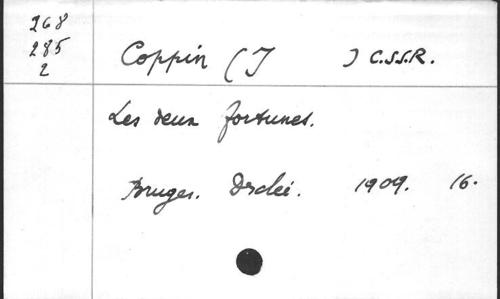 268
285
2
Coppin (J ) C.SS.R.
Les deux fortunes.
Bruges. Desclée. 1909. 16.